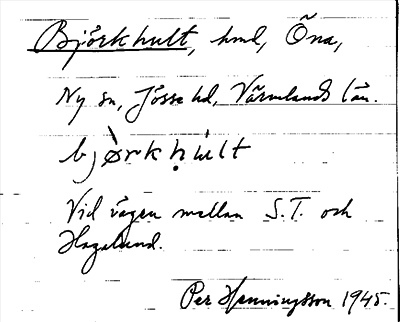 Björkhult, hmd, Öna,
Ny sn, Jösse hd, Värmlands län.
bjørkhult
Vid vägen mellan S.T. och
Hagalund.
Per Henningsson 1945.